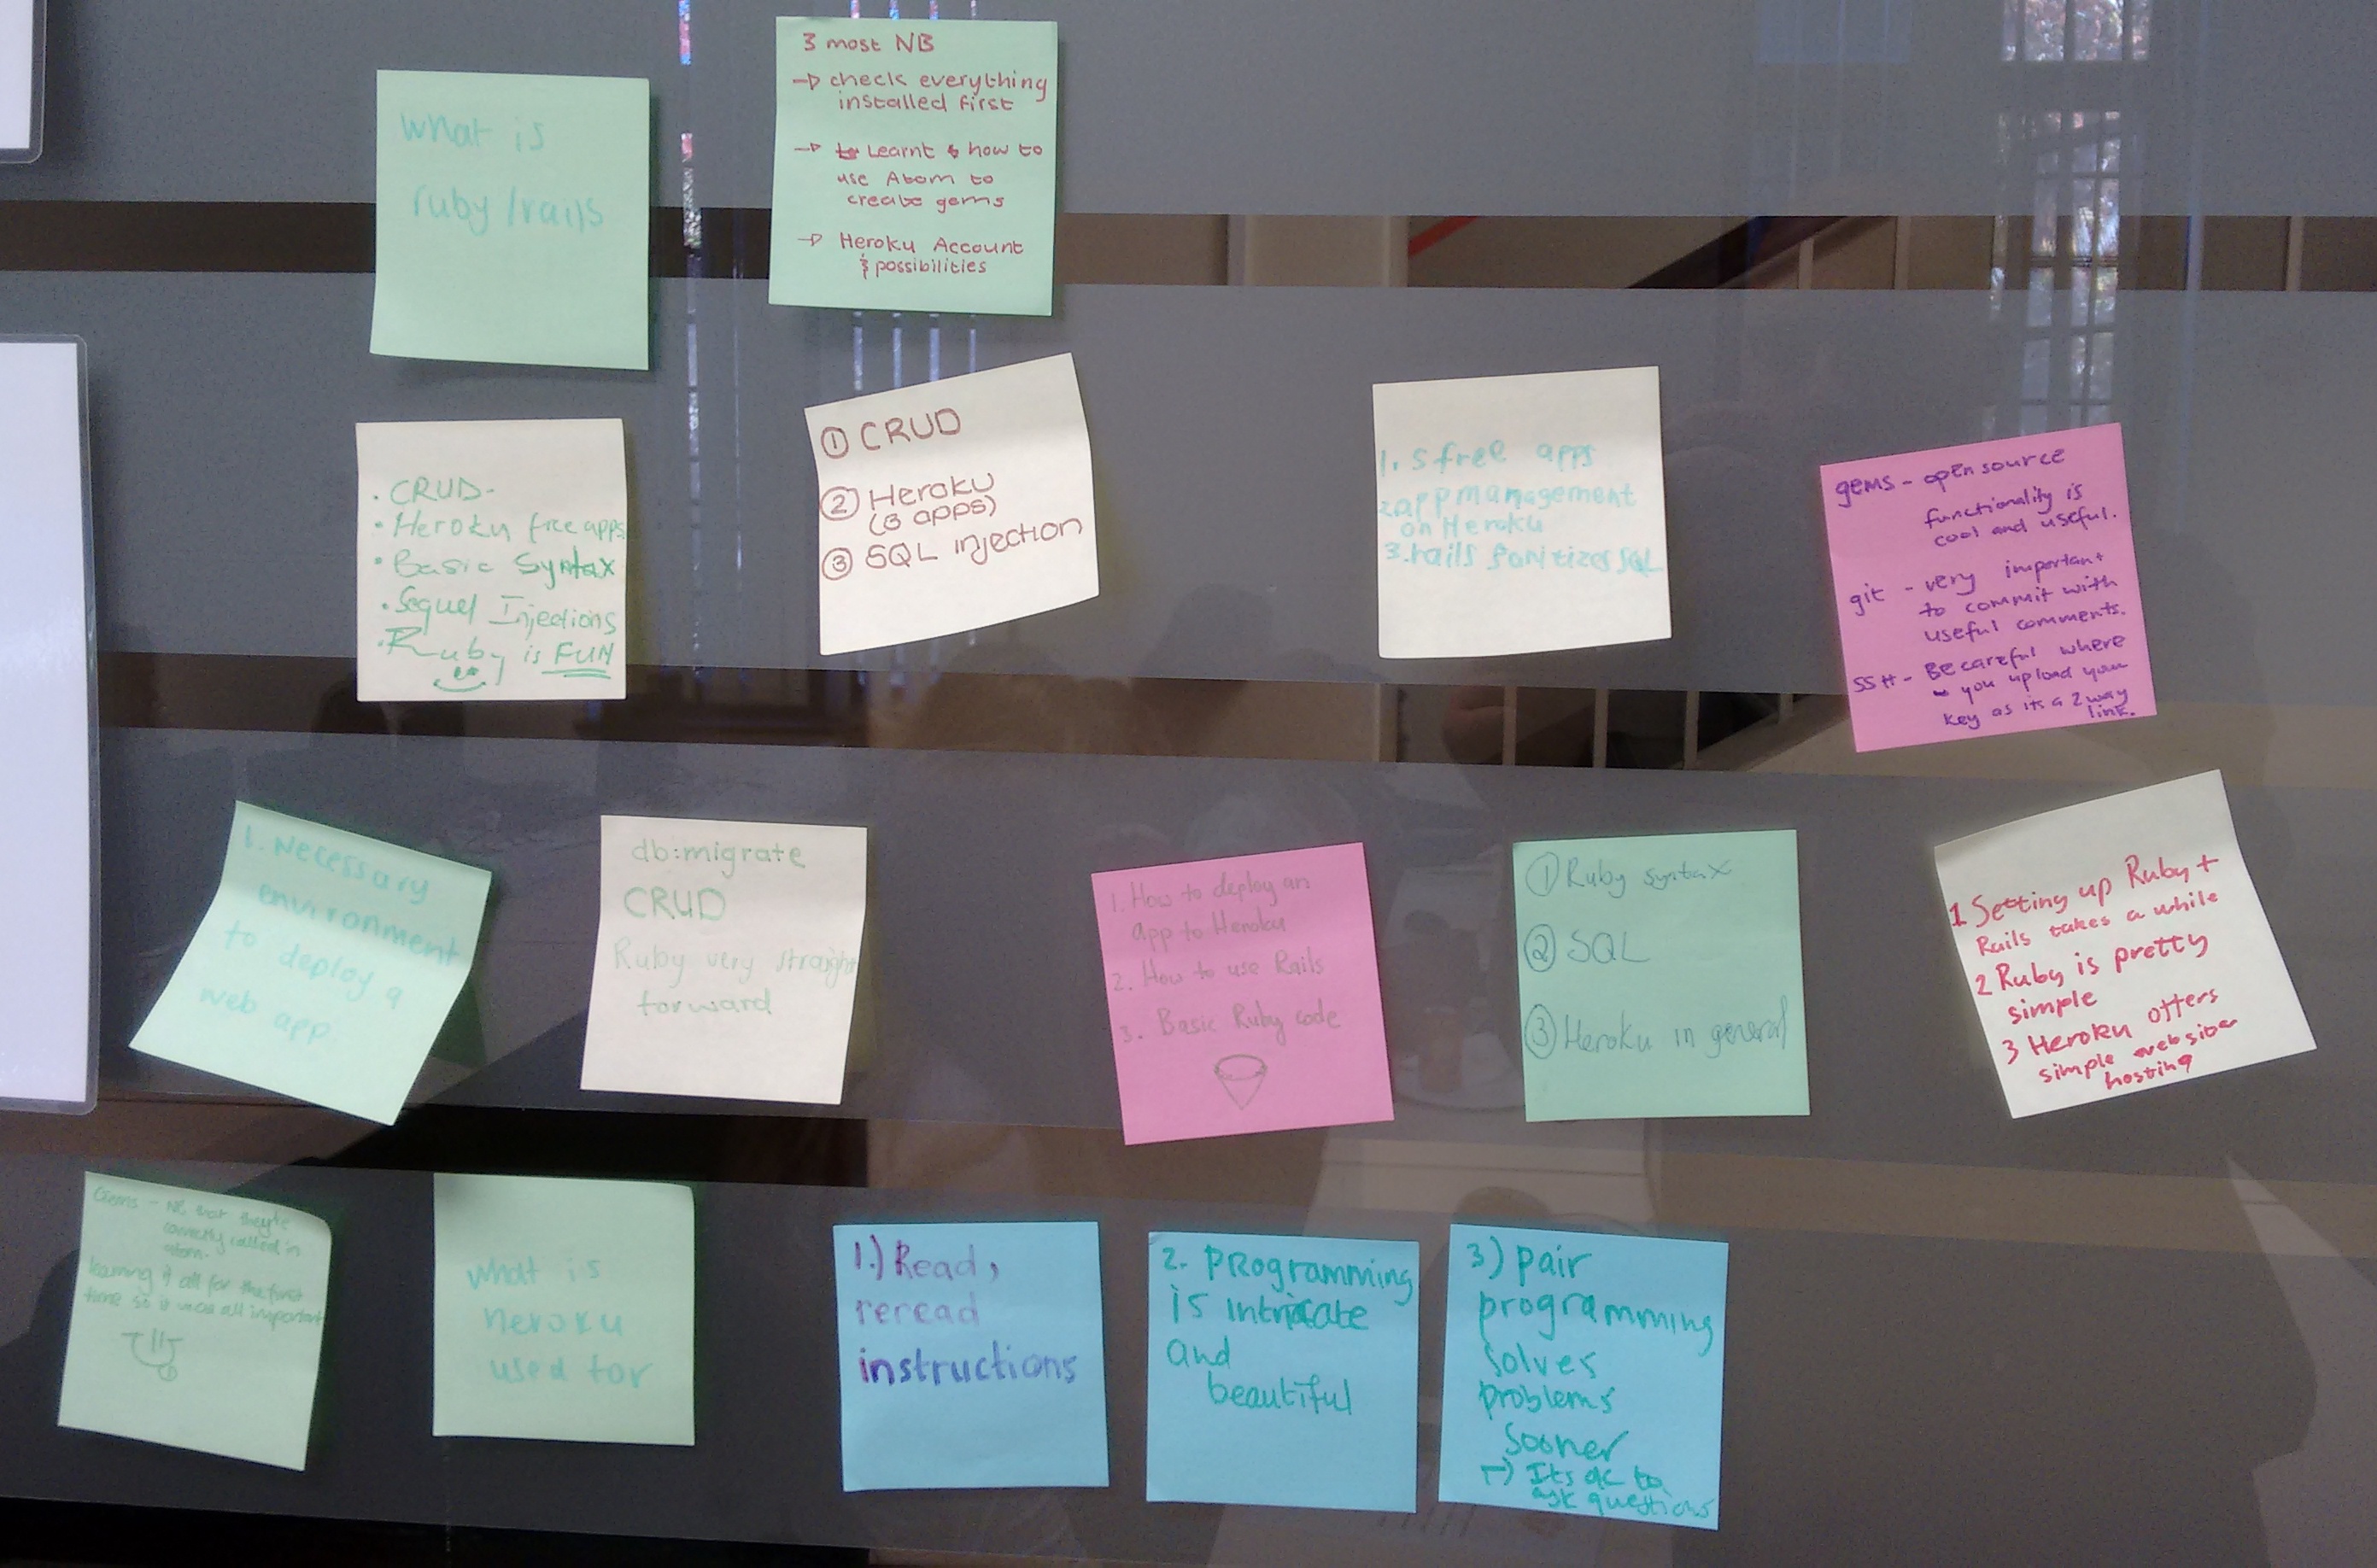 what is
ruby/rails
3 most NB
→ check everything
installed first
→ Learnt how to
use Atom to
create gems
→ Heroku Account
& possibilities
. CRUD-
. Heroku free apps
. Basic Syntax
. Sequel Injections
. Ruby is FUN
① CRUD
② Heroku
(5 apps)
③ SQL injection
1. 5 free apps
2 app management
on Heroku
3. rails sanitizes SQL
gems - open source
functionality is
cool and useful.
git - very important
to commit with
useful comments.
SSH - Be careful where
you upload your
key as its a 2 way
link.
1. Necessary
environment
to deploy a
web app
db:migrate
CRUD
Ruby very straight
forward
1. How to deploy an
app to Heroku
2. How to use Rails
3. Basic Ruby code
① Ruby syntax
② SQL
③ Heroku in general
1 Setting up Ruby +
Rails takes a while
2 Ruby is pretty
simple
3 Heroku offers
simple website
hosting
Gems - NB that they're
correctly called in
atom.
learning it all for the first
time so it was all important
what is
heroku
used for
1.) Read,
reread
instructions
2. Programming
is intricate
and
beautiful
3) pair
programming
solves
problems
sooner
Its ok to
ask questions